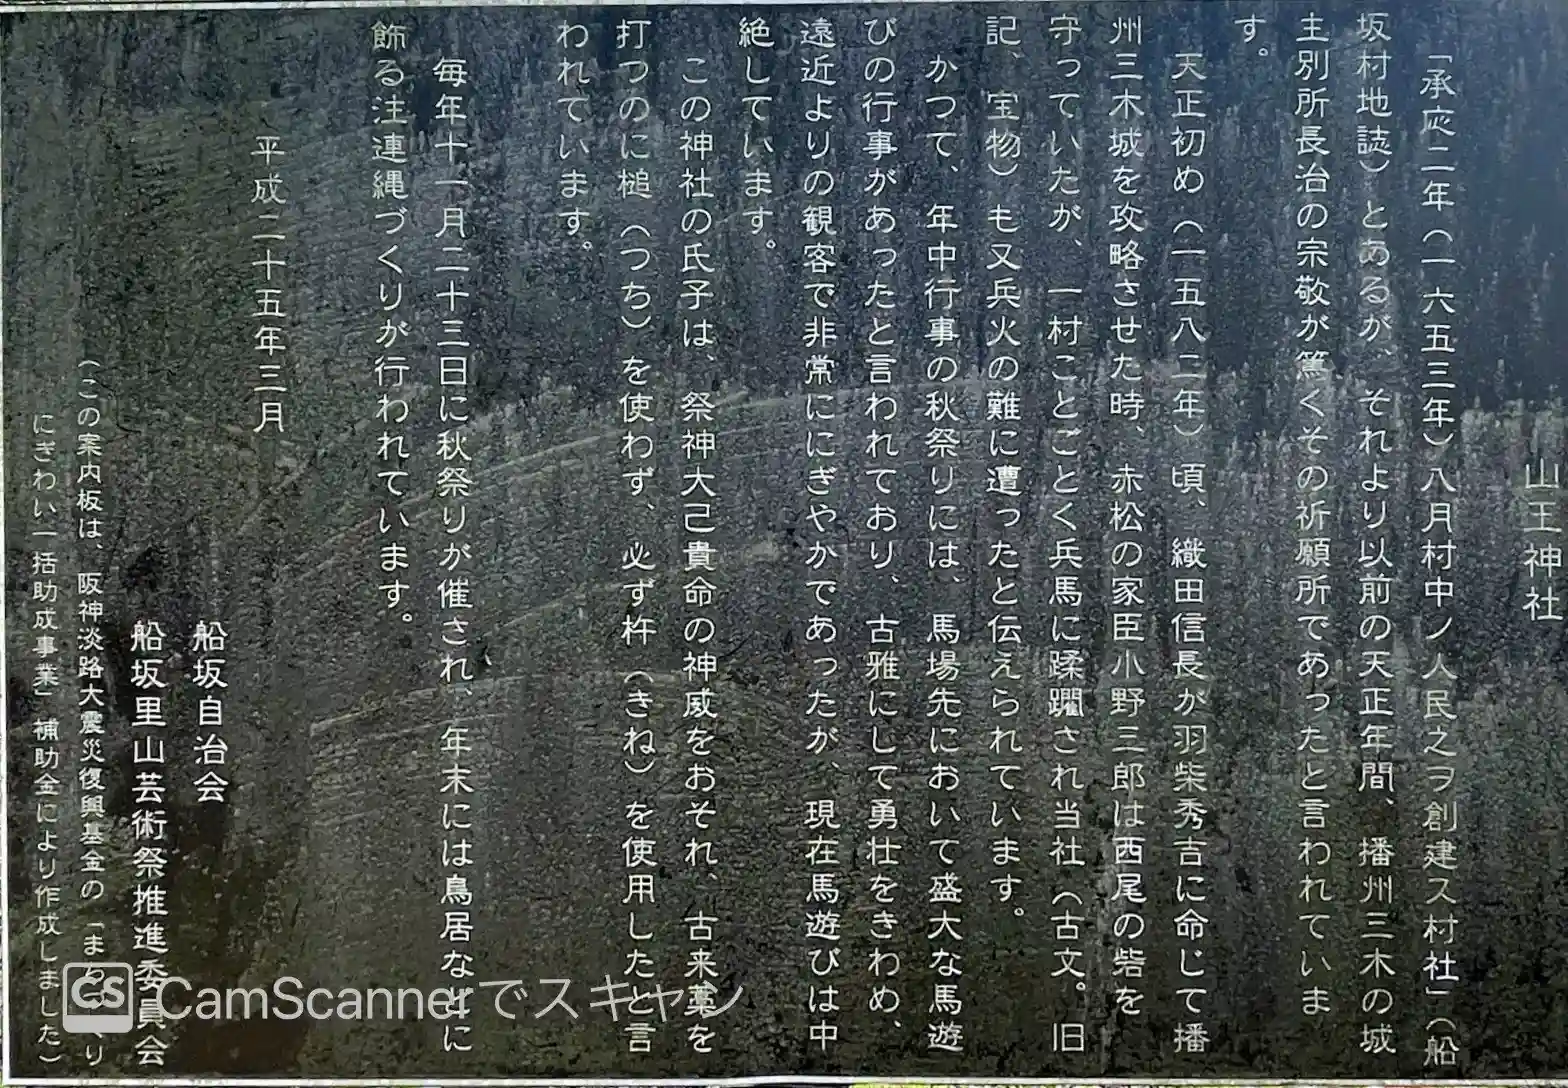 山王神社
「承応二年（一六五三年）八月村中ノ人民之ヲ創建ス村社」（船
坂村地誌）とあるが、それより以前の天正年間、播州三木の城
主別所長治の宗敬が篤くその祈願所であったと言われていま
す。
天正初め（一五八二年）頃、織田信長が羽柴秀吉に命じて播
州三木城を攻略させた時、赤松の家臣小野三郎は西尾の砦を
守っていたが、一村ことごとく兵馬に蹂躙され当社（古文。旧
記、宝物）も又兵火の難に遭ったと伝えられています。
かつて、年中行事の秋祭りには、馬場先において盛大な馬遊
びの行事があったと言われており、古雅にして勇壮をきわめ、
遠近よりの観客で非常ににぎやかであったが、現在馬遊びは中
絶しています。
この神社の氏子は、祭神大己貴命の神威をおそれ、古来藁を
打つのに槌（つち）を使わず、必ず杵（きね）を使用したと言
われています。
毎年十一月二十三日に秋祭りが催され、年末には鳥居などに
飾る注連縄づくりが行われています。
平成二十五年三月
船坂自治会
船坂里山芸術祭推進委員会
（この案内板は、阪神淡路大震災復興基金の「まちのり
にぎわい一括助成事業」補助金により作成しました）
CS CamScannerでスキャン